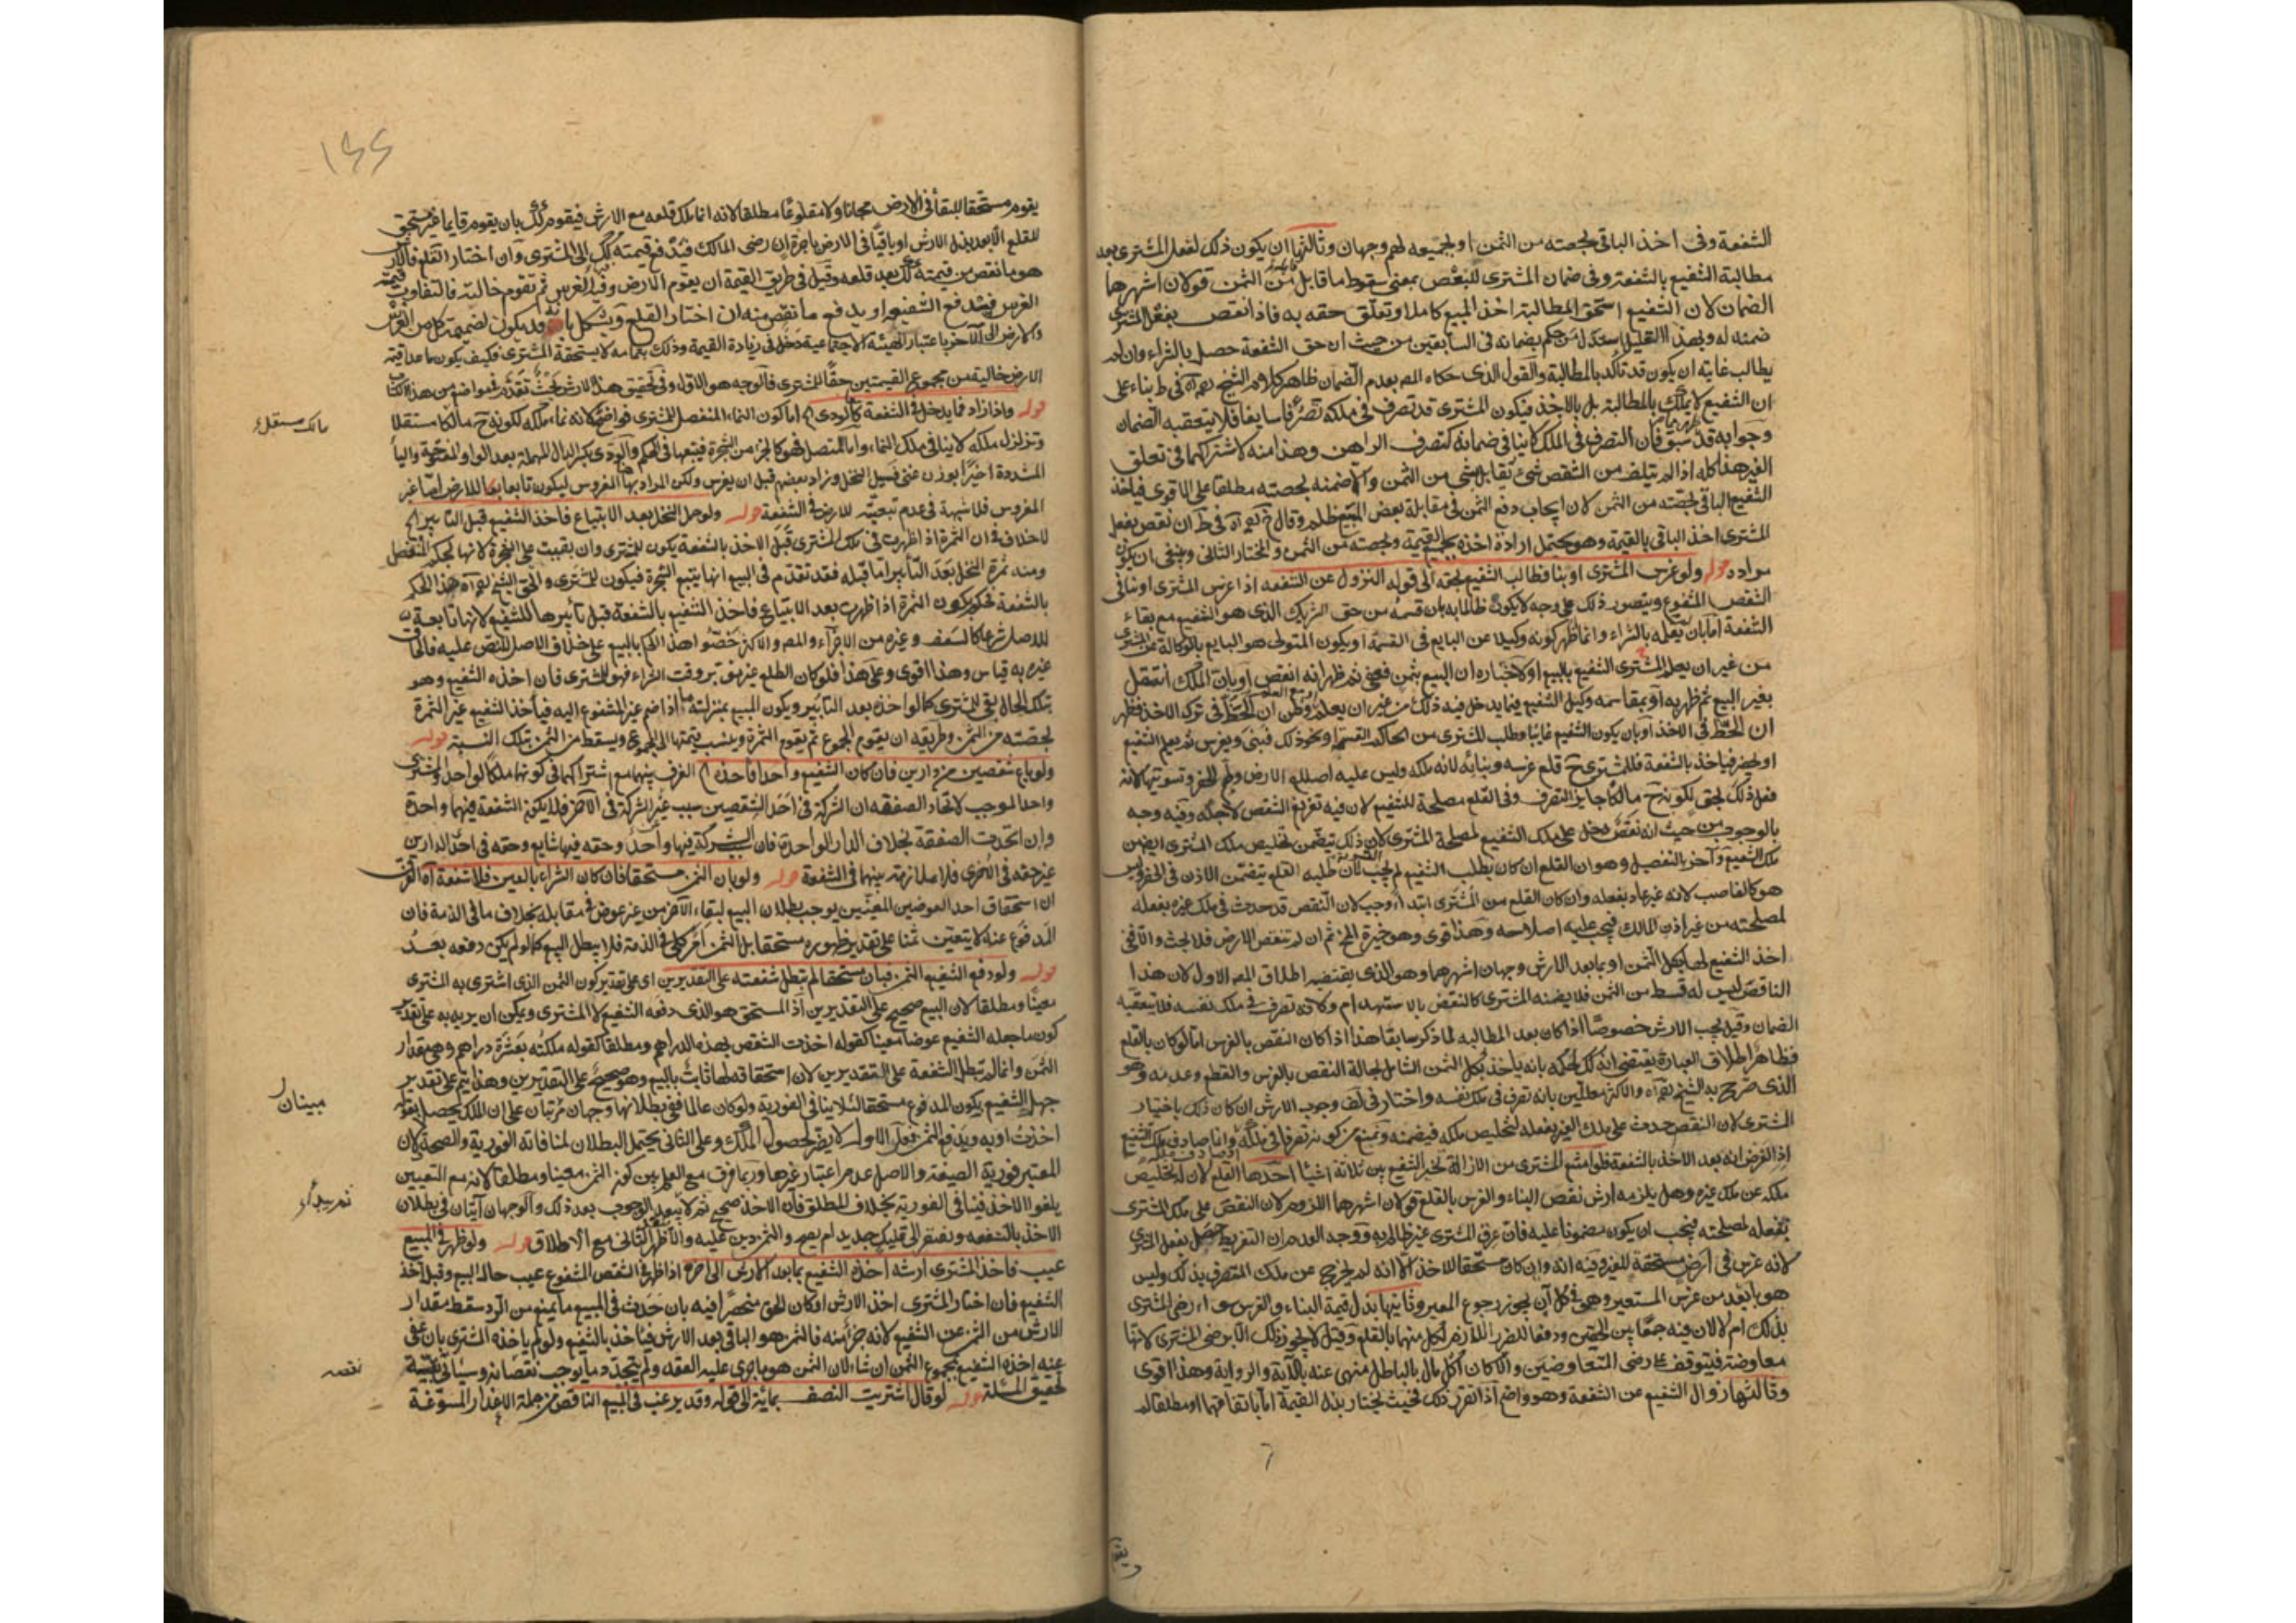 الشفعة وفى اخذ الباقى بحصته من الثمن او بجميعه لهم وجهان وثالثها ان يكون ذلك بفعل المشترى بعد
مطالبة الشفيع بالشفعة وفى ضمان المشترى للنقص بمعنى سقوط ما قابله من الثمن قولان اشهرهما
الضمان لان الشفيع استحق بالمطالبة اخذ المبيع كاملا وتعلق حقه به فاذا نقص بفعل المشترى
ضمنه له وبهذا التعليل استدل من حكم بضمانه فى السابقين من حيث ان حق الشفعة حصل بالشراء وان لم
يطالب غايته ان يكون قد تأكد بالمطالبة والقول الذى حكاه المص بعدم الضمان ظاهر كلام الشيخ فى ط بناء على
ان الشفيع لا يملك بالمطالبة بل بالاخذ فيكون المشترى قد تصرف فى ملكه تصرفا سايغا فلا يتعقبه الضمان
وجوابه قد سبق فان التصرف فى الملك لا ينافى ضمانه كتصرف الراهن وهذا منه لاشتراكهما فى تعلق
الغير هذا كله اذا لم يتلف من الشقص شئ يقابل بشئ من الثمن والا ضمنه بحصته مطلقا على الاقوى فياخذ
الشفيع الباقى بحصته من الثمن لان ايجاب دفع الثمن فى مقابلة بعض المبيع ظلم وقال فى ط ان نقص بفعل
المشترى اخذ الباقى بالقيمة وهو يحتمل ارادة اخذه بجميع القيمة وبحصته من الثمن والمختار الثانى وينبغى ان يكون
مراده قوله ولو غرس المشترى او بنا فطالب الشفيع بحقه الى قوله النزول عن الشفعه اذا غرس المشترى او بنا فى
الشقص المشفوع ويتصور ذلك على وجه لا يكون ظالما به بان قسمه من حق الشريك الذى هو الشفيع مع بقاء
الشفعة اما بان بالشراء وانما ظهر كونه وكيلا عن البايع فى القسمة او يكون المتولى هو البايع بالوكالة عن المشترى
من غير ان يعلم المشترى الشفيع بالبيع او لاخباره ان البيع بثمن فعفى ثم ظهر انه انقص او بان الملك انتقل
بغير البيع ثم ظهر به او بمقاسمه وكيل الشفيع فيما يدخل فيه ذلك من غير ان يعلم وظن ان الحظ فى ترك الاخذ فظهر
ان الحظ فى الاخذ او بان يكون الشفيع غايبا وطلب المشترى من الحاكم القسمة ونحو ذلك فبنى وغرس ثم يعلم الشفيع
او يحضر فياخذ بالشفعة فللمشترى ح قلع غرسه وبنائه لانه ملكه وليس عليه اصلاح الارض وطم الحفر وتسويتها لانه
فعل ذلك بحق لكونه ح مالكا جايز التصرف وفى القلع مصلحة للشفيع لان فيه تفريغ الشقص لاجله وفيه وجه
بالوجوب من حيث انه نقص دخل على ملك الشفيع لمصلحة المشترى لان ذلك يتضمن تخليص ملك المشترى
ملك الشفيع وآخر بالتفصيل وهو ان القلع ان كان بطلب الشفيع لم يجب لان طلبه القلع يتضمن الاذن فى الحفر وليس
هو كالغاصب لانه غير عاد بفعله وان كان القلع من المشترى ابتداء وجب لان النقص قد حدث فى ملك غيره بفعله
لمصلحته من غير اذن المالك فيجب عليه اصلاحه وهذا قوى وهو خيرة ثم ان لم تنقص الارض فلا بحث
اخذ الشفيع لها بكل الثمن او بما بعد الارش وجهان اشهرهما وهو الذى يقتضيه اطلاق المص الاول لان هذا
الناقص ليس له قسط من الثمن فلا يضمنه المشترى كالنقص بالاستهدام ولانه تصرف فى ملك نفسه فلا يتعقبه
الضمان وقيل يجب الارش خصوصا اذا كان بعد المطالبه لما ذكر سابقا هذا اذا كان النقص بالغرس اما لو كان بالقلع
فظاهر اطلاق العبارة يقتضى انه كك لحكمه بانه ياخذ بكل الثمن الشامل لحالة النقص بالغرس والقطع وعدمه وهو
الذى صرح به الشيخ والاكثر معللين بانه تصرف فى ملك نفسه واختار فى لف وجوب الارش ان كان ذلك باختيار
المشترى لان النقص حدث على ملك الغير بفعله لتخليص ملكه فيضمنه ونمنع من كونه تصرفا فى ملكه وانما صادف ملك الشفيع
اذ الفرض انه بعد الاخذ بالشفعة فلو امتنع المشترى من الازالة تخير الشفيع بين ثلاثة اشيا احدها القلع لان له تخليص
ملكه عن ملك غيره وهل يلزمه ارش نقص البناء والغرس بالقلع قولان اشهرهما اللزوم لان النقص على ملك المشترى
بفعله لمصلحته فيجب ان يكون مضمونا عليه فان غرس المشترى غير ظالم به ووجه العدم ان التفريط حصل بفعل المشترى
لانه غرس فى ارض مستحقة للغير وفيه انه وان كان مستحقا للاخذ الا انه لم يخرج عن ملك المتصرف بذلك وليس
هو بابعد من غرس المستعير وهى فى كل آن يجوز رجوع المعير وثانيها بذل قيمة البناء والغرس سواء رضى المشترى
بذلك ام لا لان فيه جمعا بين الحقين ودفعا للضرر اللازم لكل منها بالقلع وقيل لا يجوز ذلك الا برضى المشترى لانها
معاوضة فيتوقف على رضى المتعاوضين والا كان اكل مال بالباطل منهى عنه بالآية والرواية وهذا اقوى
وثالثها نزول الشفيع عن الشفعة وهو واضح اذا تقرر ذلك فحيث يختار بذل القيمة اما باتفاقهما او مطلقا لم
يقوم
١٤٤
يقوم مستحقا للبقاء فى الارض مجانا ولا مقلوعا مطلقا لانه انما يملك قلعه مع الارش فيقوم كك بان يقوم قايما غير مستحق
للقلع الا بعد بذل الارش او باقيا فى الارض باجرة ان رضى المالك فيدفع قيمته كك الى المشترى وان اختار القلع فالارش
هو ما نقص من قيمته كك بعد قلعه وقيل فى طريق القيمة ان يقوم الارض وفيها الغرس ثم تقوم خالية فالتفاوت قيمة
الغرس فيدفع الشفيع او يدفع ما نقص منه ان اختار القلع ويشكل بانه قد يكون لضميمة كل من الغرس
والارض الى الآخر باعتبار الهيئة الاجتماعية دخل فى زيادة القيمة وذلك بتمامه لا يستحقه المشترى فكيف يكون ما عدا قيمة
الارض خالية من مجموع القيمتين حقا للمشترى فالوجه هو الاول وفى تحقيق هذا الارش بحث تقدم فى مواضع من هذا الكتاب
قوله واذا زاد فما يدخل فى الشفعة كالودى اما كون النماء المنفصل للمشترى فواضح لانه نماء ملكه لكونه ح مالكا مستقلا
وتزلزل ملكه لا ينافى ملك النماء واما المتصل فهو كالجزء من الشجرة فيتبعها فى الحكم والودى بكسر الدال المهملة بعد الواو المفتوحة والياء
المشددة اخيرا بوزن غنى فسيل النخل وزاد بعضهم قبل ان يغرس ولكن المراد بها المغروس ليكون تابعا للارض اما غير
المغروس فلا شبهة فى عدم تبعيته للارض فى الشفعة قوله ولو حمل النخل بعد الابتياع فاخذ الشفيع قبل التابير
لا خلاف فى ان الثمرة اذا ظهرت فى ملك المشترى قبل الاخذ بالشفعة يكون للمشترى وان بقيت على الشجرة لانها بحكم المنفصل
ومنه ثمرة النخل بعد التأبير اما قبله فقد تقدم فى البيع انها يتبع الشجرة فيكون للمشترى والحق الشيخ هذا الحكم
بالشفعة فحكم بكون الثمرة اذا ظهرت بعد الابتياع فاخذ الشفيع بالشفعة قبل تأبيرها للشفيع لانها تابعة
للاصل شرعا كالسعف وغيره من الاجزاء والمص والاكثر خصوا هذا الحكم بالبيع على خلاف الاصل للنص عليه فالحاق
غيره به قياس وهذا اقوى وعلى هذا فلو كان الطلع غير مؤبر وقت الشراء فهو للمشترى فان اخذه الشفيع وهو
بتلك الحال بقى للمشترى كما لو اخذه بعد التابير ويكون المبيع بمنزلة ما اذا ضم غير المشفوع اليه فيأخذ الشفيع غير الثمرة
بحصته من الثمن وطريقه ان يقوم المجموع ثم يقوم الثمرة وينسب قيمتها الى المجموع ويسقط من الثمن بتلك النسبة قوله
ولو باع شقصين من دارين فان كان الشفيع واحدا فاخذه الفرق بينهما مع اشتراكهما فى كونهما ملكا لواحد والمشترى
واحدا لموجب لاتحاد الصفقه ان الشركة فى احد الشقصين سبب غير الشركة فى الآخر فلا يكون الشفعة فيهما واحدة
وان اتحدت الصفقة بخلاف الدار الواحدة فان الشركة فيها واحدة وحقه فيها شايع وحقه فى احد الدارين
غير حقه فى الاخرى فلا ملازمة بينهما فى الشفعة قوله ولو بان الثمن مستحقا فان كان الشراء بالعين فلا شفعة الفرق
ان استحقاق احد العوضين المعينين يوجب بطلان البيع لبقاء الآخر من غير عوض فى مقابله بخلاف ما فى الذمة فان
المدفوع عنه لا يتعين ثمنا على تقدير ظهوره مستحقا بل الثمن امر كلى فى الذمة فلا يبطل البيع كما لو لم يكن دفعه بعد
قوله ولو دفع الشفيع الثمن فبان مستحقا لم تبطل شفعته على التقديرين اى على تقدير كون الثمن الذى اشترى به المشترى
معينا ومطلقا لان البيع صحيح على التقديرين اذ المستحق هو الذى دفعه الشفيع لا المشترى ويمكن ان يريد به على تقدير
كون ما جعله الشفيع عوضا معينا كقوله اخذت الشقص بهذه الدراهم ومطلقا كقوله ملكته بعشرة دراهم وهى مقدار
الثمن وانما لم تبطل الشفعة على التقديرين لان استحقاقه لها ثابت بالبيع وهو صحيح على التقديرين وهذا يتم على تقدير
جهل الشفيع بكون المدفوع مستحقا لئلا ينافى الفورية ولو كان عالما ففى بطلانها وجهان مرتبان على ان الملك يحصل بقوله
اخذت او به وبدفع الثمن فعلى الاول لا يضر لحصول الملك وعلى الثانى يحتمل البطلان لمنافاته الفورية والصحة لان
المعتبر فورية الصيغة والاصل عدم اعتبار غيرها وربما فرق مع العلم بين كون الثمن معينا ومطلقا لانه مع التعيين
يلغو الاخذ فينافى الفورية بخلاف المطلق فان الاخذ صحيح بعد ذلك والوجهان آتيان فى بطلان
الاخذ بالشفعه ويفتقر الى تمليك جديد ام يصح والثمن دين عليه والاظهر الثانى مع الاطلاق قوله ولو ظهر فى المبيع
عيب فاخذ المشترى ارشه اخذه الشفيع بما بعد الارش الى آخره اذا ظهر فى الشقص المشفوع عيب حالة البيع وقبل اخذ
الشفيع فان اختار المشترى اخذ الارش او كان الحق منحصرا فيه بان حدث فى المبيع ما يمنع من الرد سقط مقدار
الارش من الثمن عن الشفيع لانه جزء منه فالثمن هو الباقى بعد الارش فياخذ بالشفيع ولو لم ياخذه المشترى بان عفى
عنه اخذه الشفيع بجموع الثمن ان شاء لان الثمن هو ما جرى عليه العقد ولم يتجدد ما يوجب نقصانه وسيأتى بقية
تحقيق المسئلة قوله لو قال اشتريت النصف بمائة الى قوله وقد يرغب فى المبيع الناقص من جملة الاعذار المسوغة
مالك مستقل
نقصه